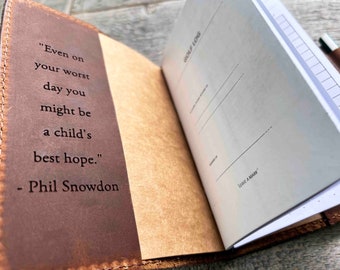 "Even on
your worst
day you
might be
a child's
best hope."
- Phil Snowdon